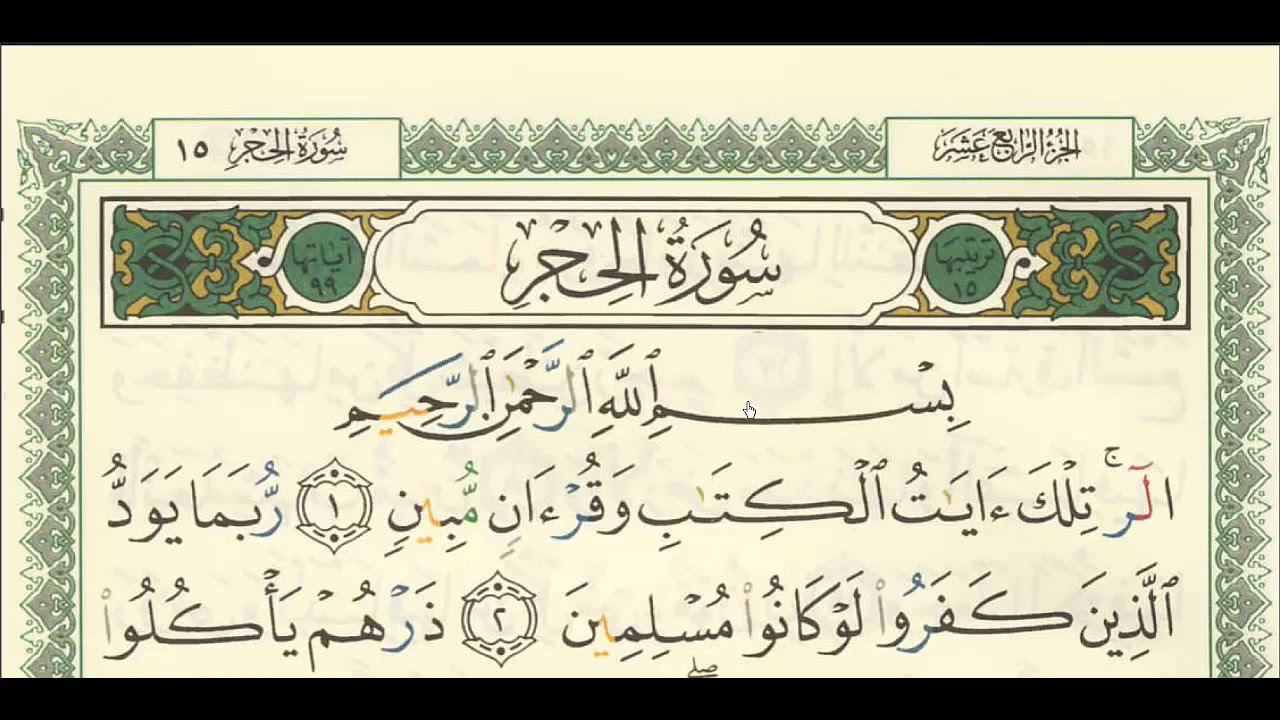 الجزء الرابع عشر
سورة الحجر ١٥
ترتيبها ١٥
سُورَةُ الحِجْرِ
آياتها ٩٩
بِسْمِ ٱللَّهِ ٱلرَّحْمَٰنِ ٱلرَّحِيمِ
الٓرۚ تِلْكَ ءَايَٰتُ ٱلْكِتَٰبِ وَقُرْءَانٍ مُّبِينٍ ١ رُّبَمَا يَوَدُّ
ٱلَّذِينَ كَفَرُوا۟ لَوْ كَانُوا۟ مُسْلِمِينَ ٢ ذَرْهُمْ يَأْكُلُوا۟